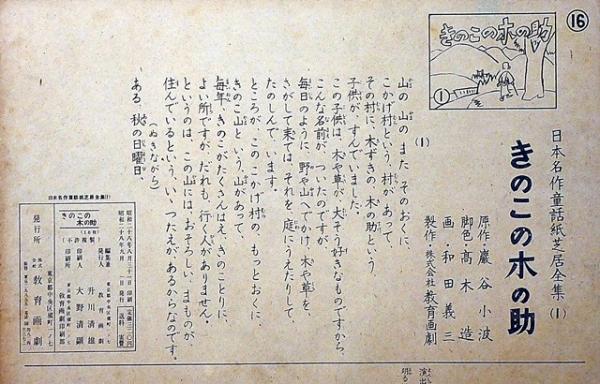 ⑯
きのこの木の助
①
日本名作童話紙芝居全集(1)
きのこの木の助
原作・巖谷小波
脚色・高木 造
画・和田義三
製作・株式会社教育画劇
(1)
山の山のまた、そのおくに、
こかげ村という、村があって、
その村に、木ずきの、木の助という、
子供が、すんでいました。
この子供は、木や草が、大そう好きなものですから、
こんな名前が、ついたのですが、
毎日のように、野や山へでかけ、木や草を、
さがして来ては、それを、庭にうえたりして
たのしんで、います。
ところが、このこかげ村の、もっとおくに、
きのこ山という山があって、
毎年、きのこがたくさんはえ、きのことりに、
よい所ですが、だれも、行く人がありません。
というのは、この山には、おそろしい、まものが、
住んでいるという、いいつたえがあるからなのです。
(ぬきながら)
ある、秋の日曜日。
日本名作童話紙芝居全集(1)
きのこの
木の助
(16枚)
(不許複製)
発行所
東京都中央区
株式会社
教育画劇
昭和二十六年八月三十一日印刷
編集兼
発行人
教育画劇
升川清雄
印刷人
大野清顕
印刷所
教育画劇印刷部
演出
明る